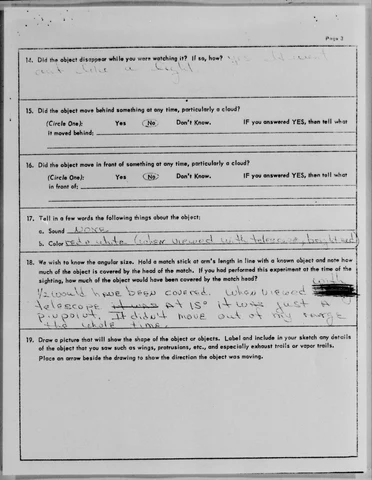 Page 3
14. Did the object disappear while you were watching it? If so, how? yes
out like a light
15. Did the object move behind something at any time, particularly a cloud?
(Circle One): Yes No Don't Know. IF you answered YES, then tell what
it moved behind:
16. Did the object move in front of something at any time, particularly a cloud?
(Circle One): Yes No Don't Know. IF you answered YES, then tell what
in front of:
17. Tell in a few words the following things about the object:
a. Sound None
b. Color red & white (when viewed with telescope, bright red)
18. We wish to know the angular size. Hold a match stick at arm's length in line with a known object and note how
much of the object is covered by the head of the match. If you had performed this experiment at the time of the
sighting, how much of the object would have been covered by the match head?
1/2 would have been covered. When viewed
telescope it was at 15° it was just a
pinpoint. It didn't move out of my range
the whole time.
19. Draw a picture that will show the shape of the object or objects. Label and include in your sketch any details
of the object that you saw such as wings, protrusions, etc., and especially exhaust trails or vapor trails.
Place an arrow beside the drawing to show the direction the object was moving.